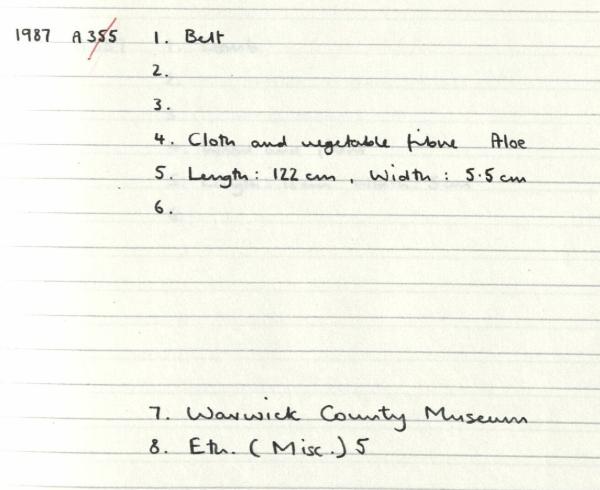 1987 A355 1. Belt
2.
3.
4. Cloth and vegetable fibre Aloe
5. Length: 122 cm, Width: 5.5 cm
6.
7. Warwick County Museum
8. Eth. (Misc.) 5